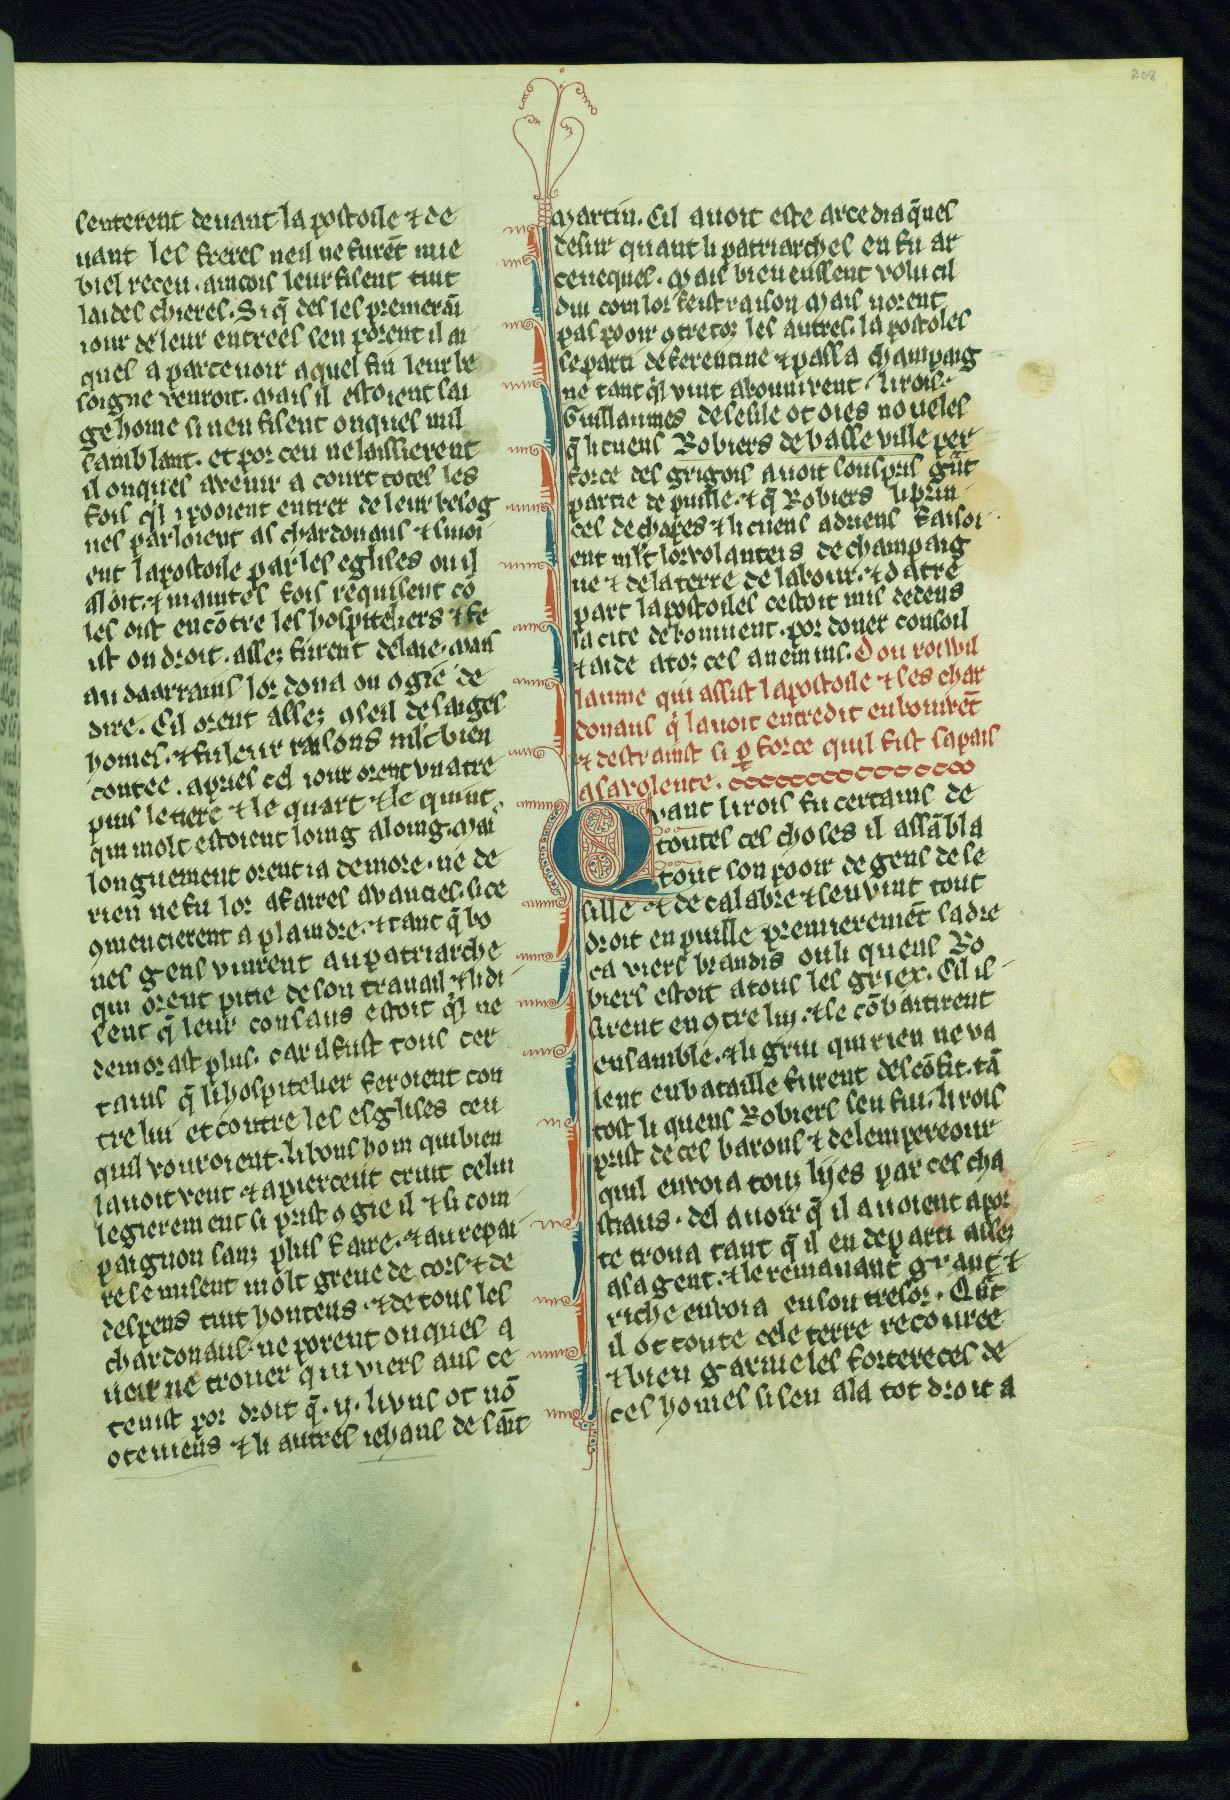 208
senterent deuant lapostoile ⁊ de
uant les freres neil ne furēt mie
biel receu. aincois leur fisent tuit
laides chieres. Si q̄ des les premerāī
iour de leur entrees seu porent il ai
ques a parcevoir a quel fin leur be
soigne venroit. mais il estoient sai
ge home si nen fisent onques mil
samblant. et por ceu ne laissierent
il onques avenir a court totes les
fois q̄l i pooient entrer de leur besog
nes parloient as chardonaus ⁊ siuoi
ent lapostoile par les eglises ou il
aloit. ⁊ maintes fois requisent cō
les oist encōtre les hospiteliers ⁊ fe
ist on droit. assez furent delaie. mais
au daarrains lor dona on ogie de
dire. Cil orent assez ꝯseil de saiges
homes. ⁊ fu leur raisons mlt bien
contee. apries cel iour orent vn atre
puis le tierc ⁊ le quart ⁊ le quint
qui molt estoient loing a loing. mai
longuement orent ia demore. ne de
rien ne fu lor afaires avancies. si ce
ꝯmencierent a plaindre. ⁊ tant q̄ bo
nes gens vinrent au patriarche
qui orent pitie de son travail ⁊ li di
sent q̄ leur consaus estoit q̄l ne
demorast plus. car il fust tous cer
tains q̄ li hospitelier feroient con
tre lui et contre les esglises ceu
quil vouroient. li bons hom qui bien
lauoit veut ⁊ apierceut cruit celui
legierement si prist ꝯgie il ⁊ si com
paignon sanz plus faire. ⁊ au repai
re se misent molt greue de cors ⁊ de
despens tuit honteus. ⁊ de tous les
chardonaus ne porent onques a
ueir ne trouer qui viers aus ce
tenist por droit q̄ .ij. li vns ot nō
oteuiens ⁊ li autres iehans de saīt
martin. Cil auoit este arcediaq̄nes
desur quant li patriarches en fu ar
ceuesques. mais bien eussent volu cil
dui com lor feist raison mais norent
pas pooir ꝯtre toz les autres. la postoles
se parti de ferentine ⁊ passa champaig
ne tant q̄l vint abonnivent. li rois
Guillaumes de sesile ot oies noueles
q̄ li cuens Robiers de basseville per
force des grigois auoit souspris gn̄t
partie de puille. ⁊ q̄ Robiers li prin
ces de chapes ⁊ li cuens adriens faisoi
ent mlt lor volanteis de champaig
ne ⁊ de la terre de labour. ⁊ datre
part lapostoiles cestoit mis dedens
la cite de bonivent. por doner consoil
⁊ aide a toz ces anemins. Dou roi wil
laume qui assist lapostoile ⁊ ses char
donaus q̄ lauoit entredit en bonivēt
⁊ destrainst si ꝑ force quil fist sa pais
a sa volente.
Quant li rois fu certains de
toutes ces choses il assābla
tout son pooir de gens de se
sille ⁊ de calabre ⁊ seu vint tout
droit en puille premieremēt sadre
ca viers brandis ou li quens Ro
biers estoit a tous les griex. Cil is
sirent encꝯtre lui. ⁊ se cōbatirent
ensamble. ⁊ li griu qui rien ne va
lent en bataille furent descōfit. tā
tost li quens Robiers sen fui. li rois
prist de ces barons ⁊ de lempereour
quil envoia touz lijes par ces cha
stiaus. del auoir q̄ il auoient apor
te troua tant q̄ il en departi assez
a sa gent. ⁊ le remanant grant ⁊
riche envoia en son tresor. Qn̄t
il ot toute cele terre recouree
⁊ bien garnie les forterecces de
ces homes si sen ala tot droit a